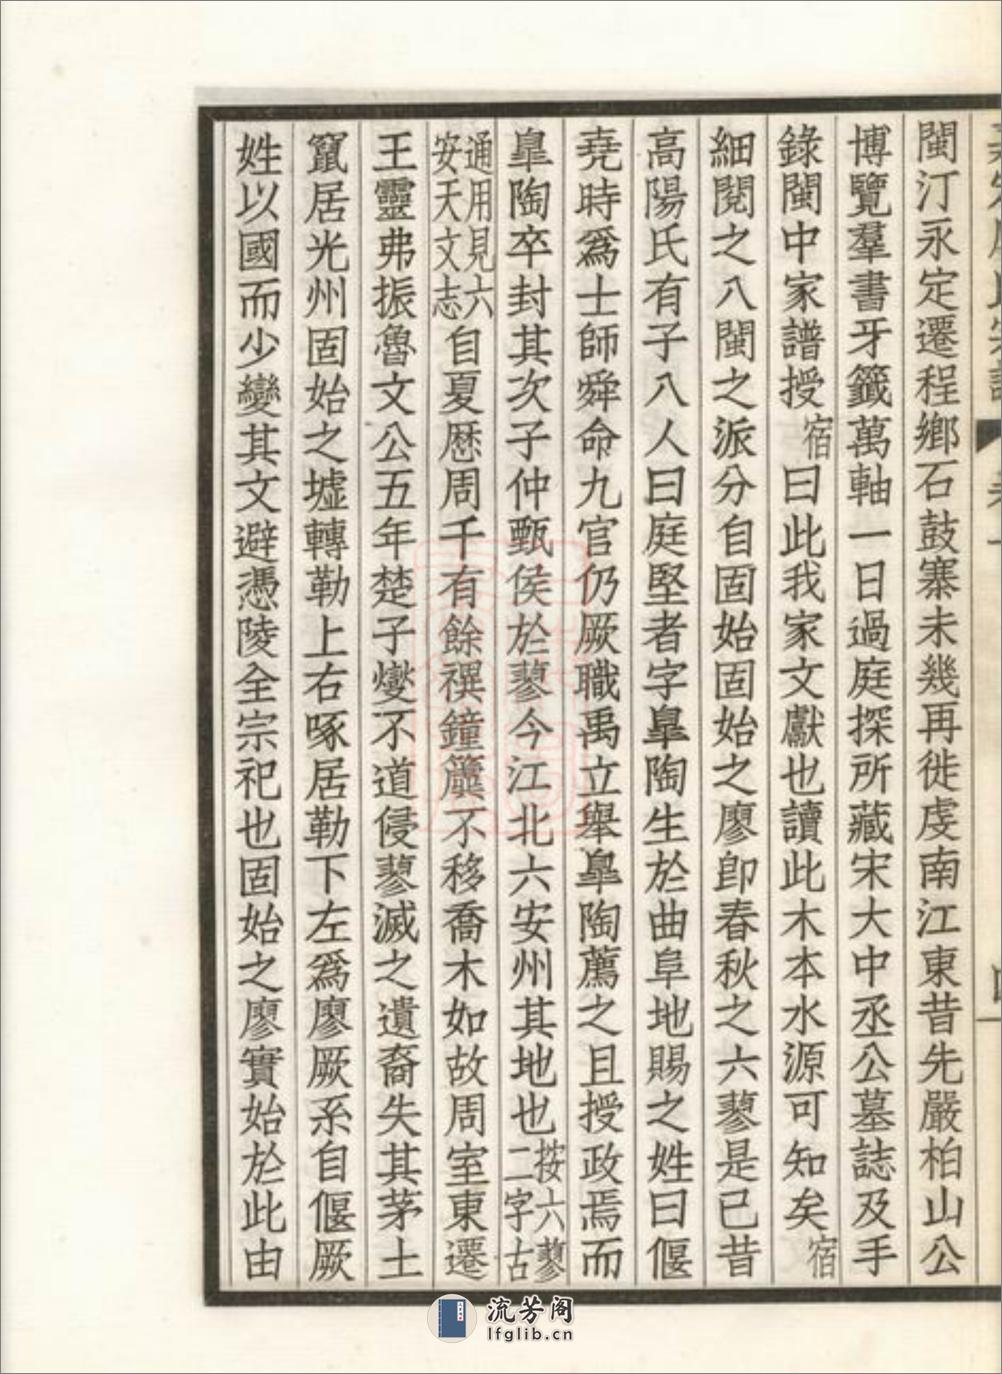 閩汀永定遷程鄉石鼓寨未幾再徙虔南江東昔先嚴柏山公
博覽羣書牙籤萬軸一日過庭探所藏宋大中丞公墓誌及手
錄閩中家譜授宿曰此我家文獻也讀此木本水源可知矣宿
細閱之八閩之派分自固始固始之廖卽春秋之六蓼是已昔
高陽氏有子八人曰庭堅者字皐陶生於曲阜地賜之姓曰偃
堯時爲士師舜命九官仍厥職禹立舉皐陶薦之且授政焉而
皐陶卒封其次子仲甄侯於蓼今江北六安州其地也按六蓼二字古
通用見六安天文志自夏歷周千有餘禩鐘簴不移喬木如故周室東遷
王靈弗振魯文公五年楚子燮不道侵蓼滅之遺裔失其茅土
竄居光州固始之墟轉勒上右啄居勒下左爲廖厥系自偃厥
姓以國而少變其文避憑陵全宗祀也固始之廖實始於此由
流芳阁
lfglib.cn